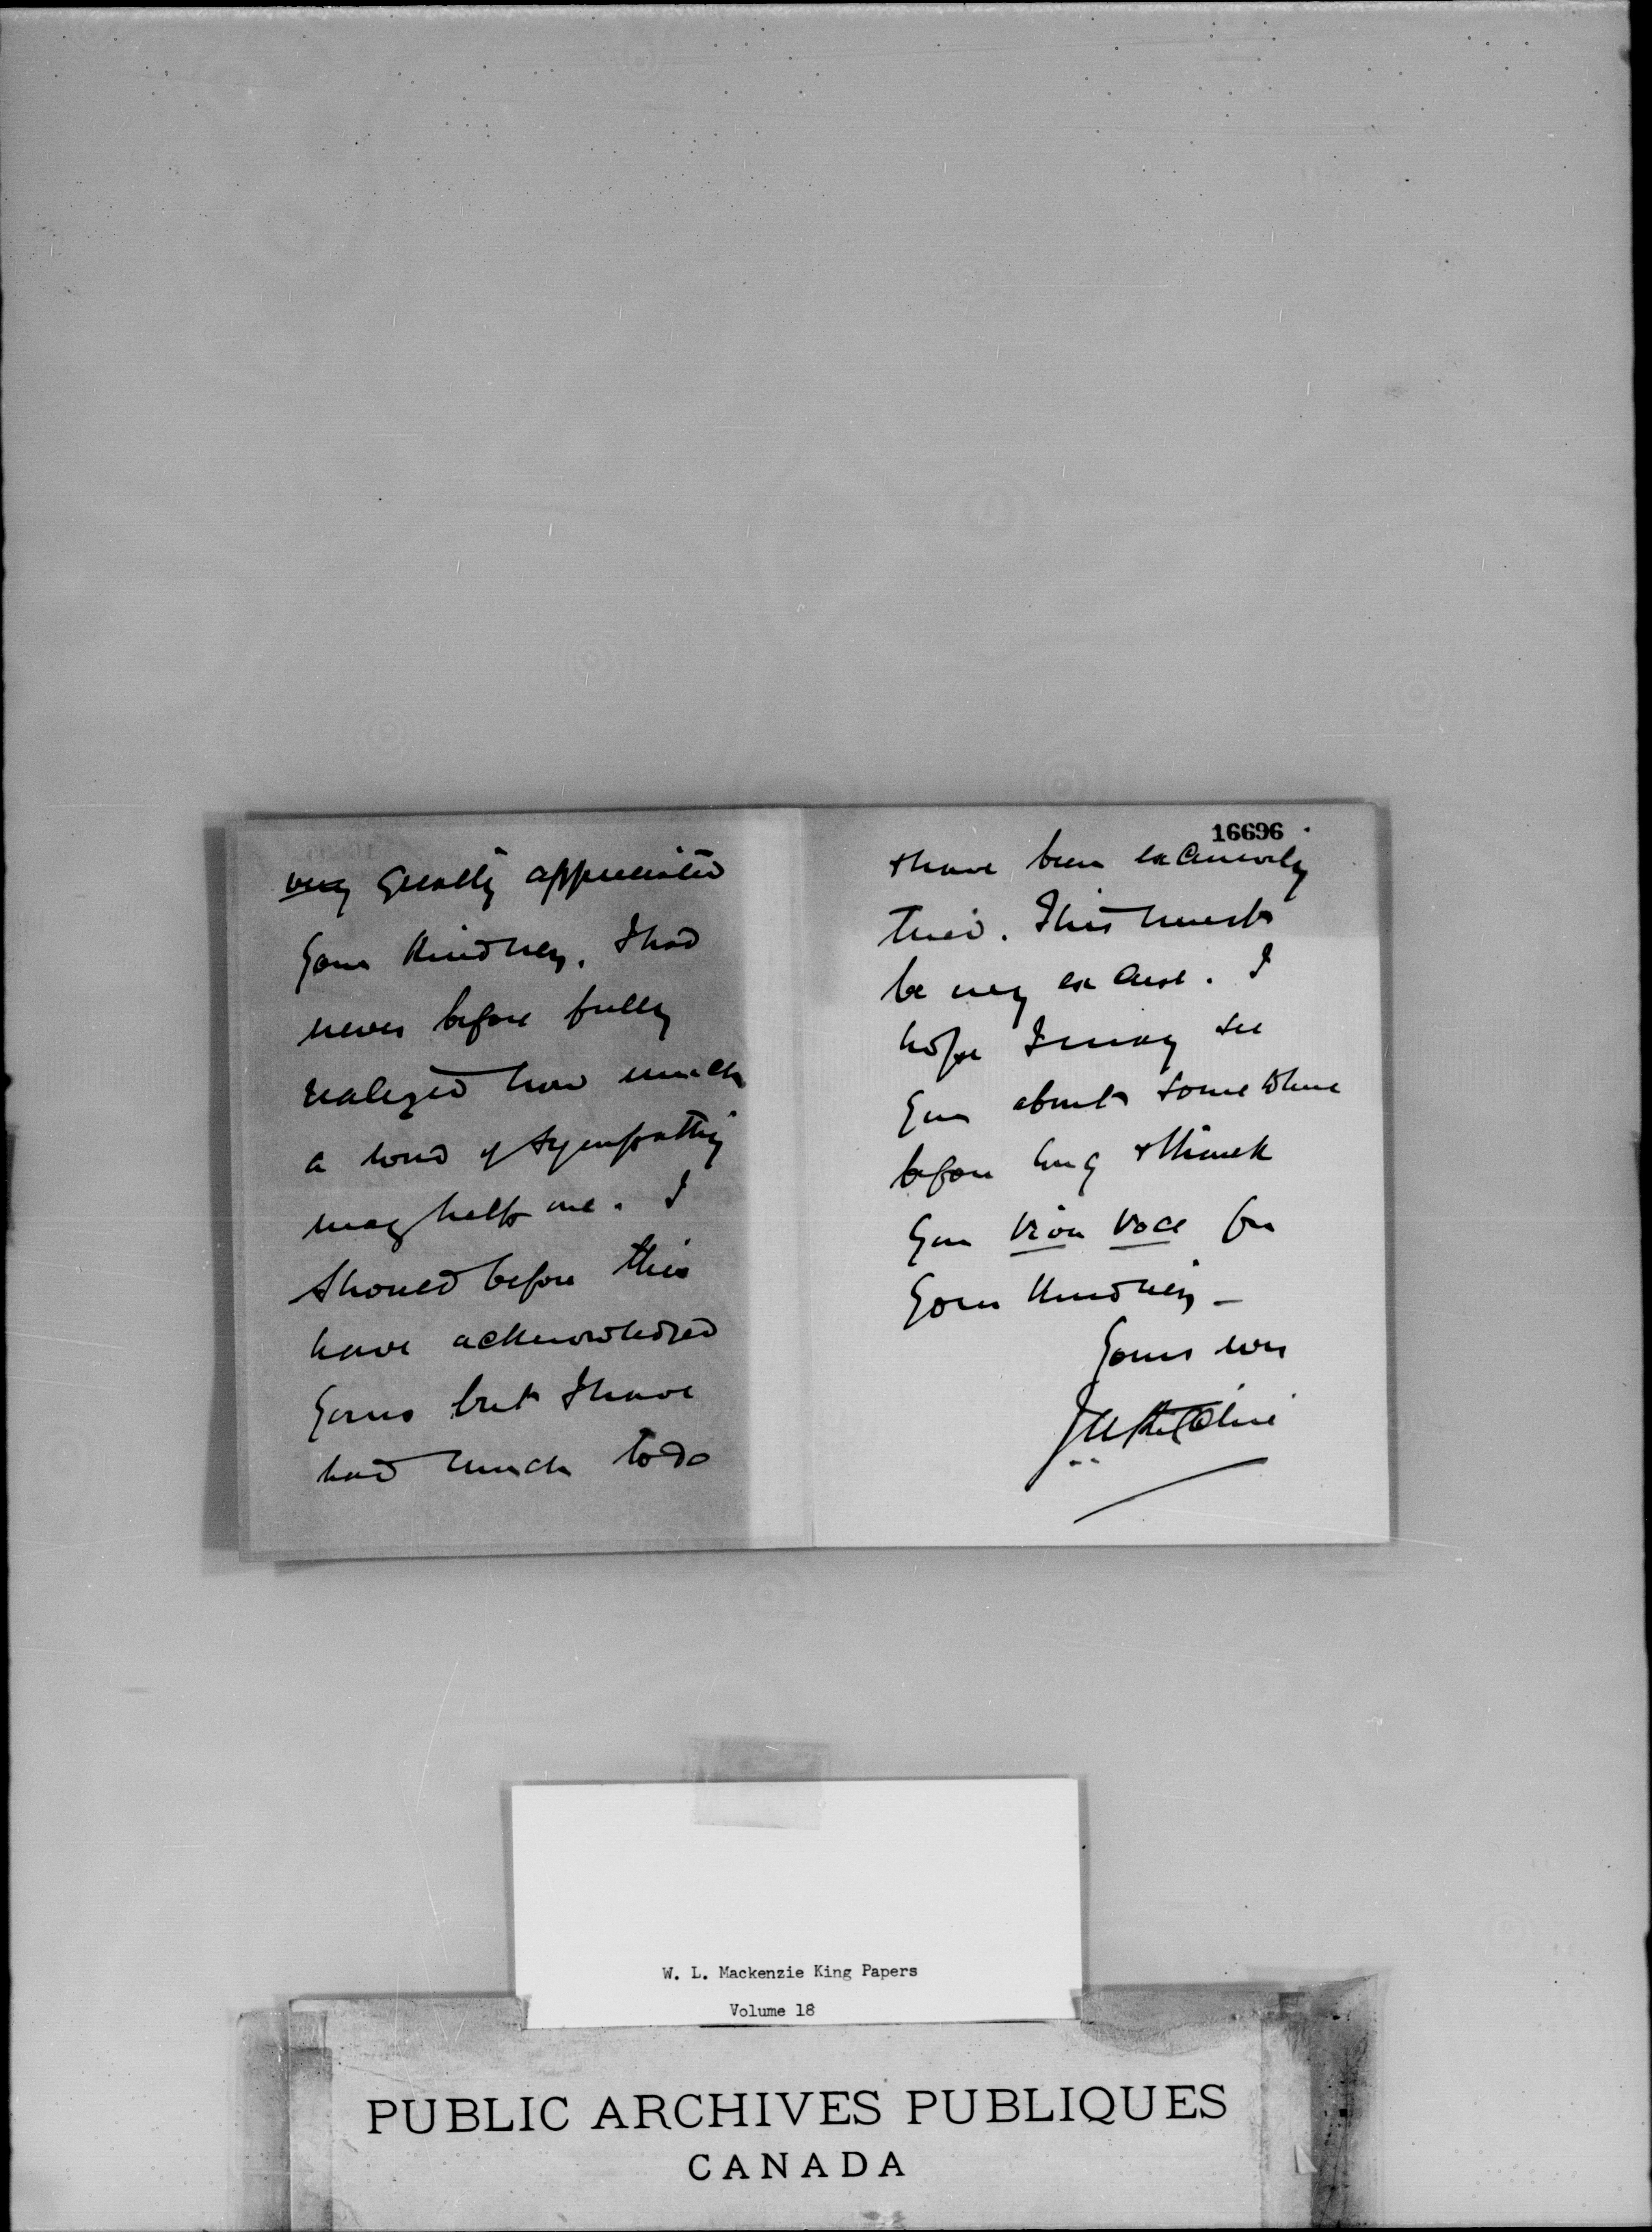 very greatly appreciated
your kindness. I had
never before fully
realized how much
a word of sympathy
may help one. I
should before this
have acknowledged
yours but I have
had much to do
16696
& have been excessively
tired. This must
be my excuse. I
hope I may see
you about somewhere
before long & thank
you viva voce for
your kindness –
Yours ever
W. L. Mackenzie King Papers
Volume 18
PUBLIC ARCHIVES PUBLIQUES
CANADA